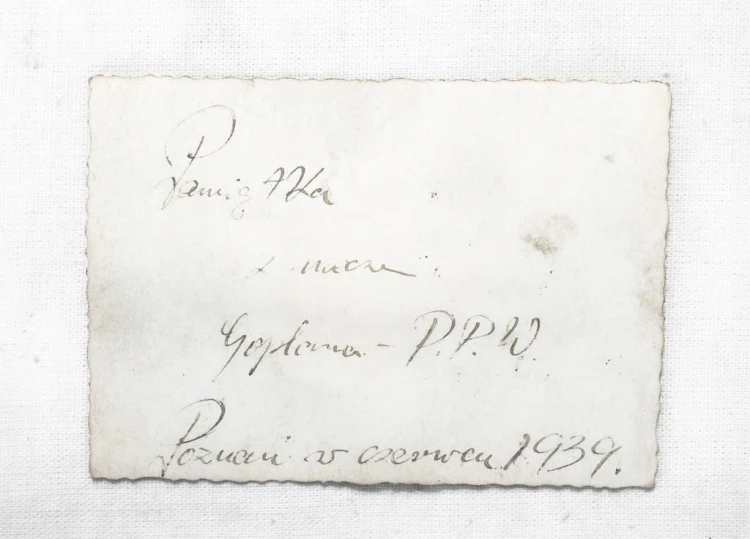 Pamiątka
z meczu
Goplana - P.P.W.
Poznań w czerwcu 1939.